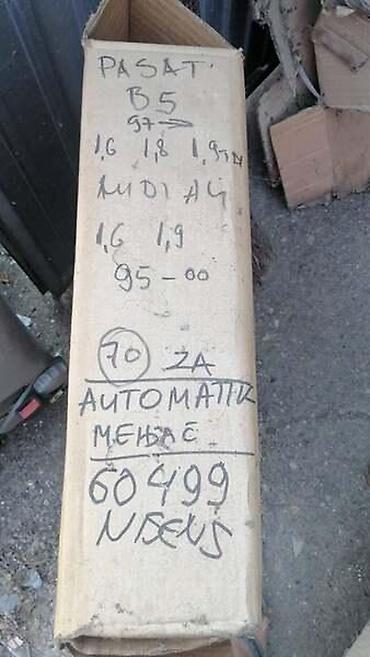 PASAT
B5
97→
1,6 1,8 1,9TDI
AUDI A4
1,6 1,9
95-00
70 ZA
AUTOMATIK
МЕЊАČ
60499
NISENS